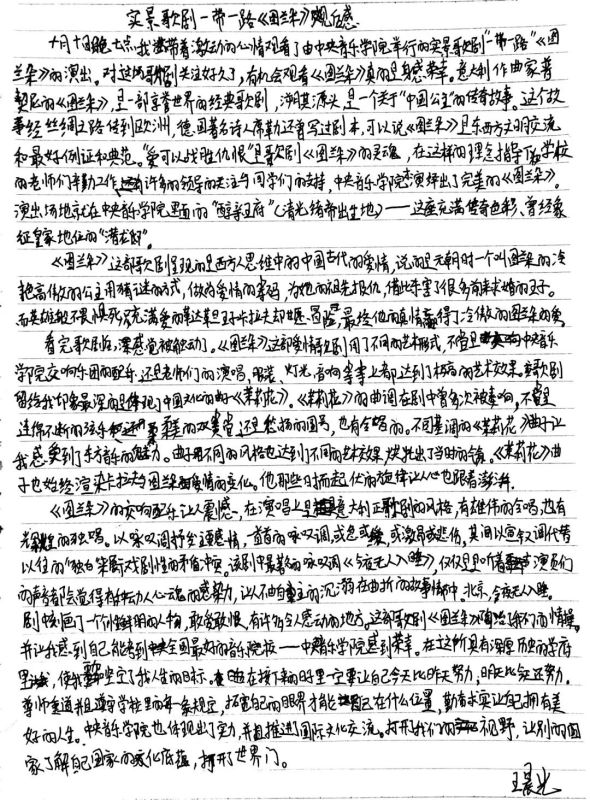 实景歌剧一带一路《图兰朵》观后感
十月十日晚七点我带着激动的心情观看了由中央音乐学院举行的实景歌剧"一带一路"《图
兰朵》的演出。对这场歌剧关注好久了,有机会观看《图兰朵》真的是倍感荣幸。意大利作曲家普
契尼的《图兰朵》,是一部享誉世界的经典歌剧,溯其源头,是一个关于"中国公主"的传奇故事。这个故
事经丝绸之路传到欧洲,德国著名诗人席勒还曾写过剧本,可以说《图兰朵》是东西方文明交流
和最好例证和典范。"爱可以战胜仇恨"是歌剧《图兰朵》的灵魂,在这样的理念指导下学校
的老师们辛勤工作还有许多的领导的关注与同学们的支持,中央音乐学院演绎出了完美的《图兰朵》。
演出场地就在中央音乐学院里面的"醇亲王府"(清光绪帝出生地)——这座充满传奇色彩、曾经象
征皇家地位的"潜龙邸"。
《图兰朵》这部歌剧呈现的是西方人思维中的中国古代的爱情,说的是元朝时一个叫图兰朵的冷
艳高傲的公主用猜谜的方式,做为爱情的筹码,为她的祖先报仇,借此杀害了很多前来求婚的王子。
而英雄般不畏惧死亡充满爱的鞑靼王子卡拉夫却甘愿冒险,最终他的真情赢得了冷傲的图兰朵的爱
看完歌剧后,深感觉被触动了。《图兰朵》这部爱情歌剧用了不同的艺术形式,不管是中央音乐
学院交响乐团的配乐,还是老师们的演唱,服装、灯光、音响等等上都达到了极高的艺术效果。歌剧
留给我印象最深的是体现了中国文化的曲子《茉莉花》。《茉莉花》的曲调在剧中曾多次被奏响,不管是
连绵不断的弦乐柔美的双簧管还是悠扬的圆号,也有合唱的。不同基调的《茉莉花》曲子让
我感受到了东方音乐的魅力。曲子用不同的风格也达到了不同的艺术效果,烘托出了当时的情境。《茉莉花》曲
子也始终渲染卡拉夫与图兰朵爱情的变化。他那些时而起伏的旋律让人心也跟着澎湃。
《图兰朵》的交响配乐让人震憾,在演唱上是意大利正歌剧的风格,有雄伟的合唱,也有
的独唱。以咏叹调抒发主要感情,一首首的咏叹调,或忽或缓,或激昂或悲伤,其间以宣叙调代替
以往的"独白"来展示戏剧性的矛盾冲突。该剧中最著名的咏叹调《今夜无人入睡》,仅仅是听着演员们
的声音都能觉得有种动人心魂的感染力,让人不由自主的沉溺在曲折的故事情节中。北京,今夜无人入睡。
剧中刻画了一个个鲜明的人物,敢爱敢恨,有许多令人感动的地方。这部歌剧《图兰朵》陶冶了我们的情操。
并让我感到自己能考到全国最好的音乐院校——中央音乐学院感到荣幸。在这所具有深厚历史的学府
里,使我坚定了我人生的目标。在接下来的日子里一定要让自己今天比昨天努力,明天比今天还努力。
尊师重道并且遵守学校里的每一条规定,拓宽自己的眼界才能自己在什么位置,勤奋求实让自己拥有美
好的人生。中央音乐学院也体现出了实力,并且推进了国际文化交流。打开我们的视野,让别的国
家了解自己国家的文化底蕴,打开了世界门。
王晨光